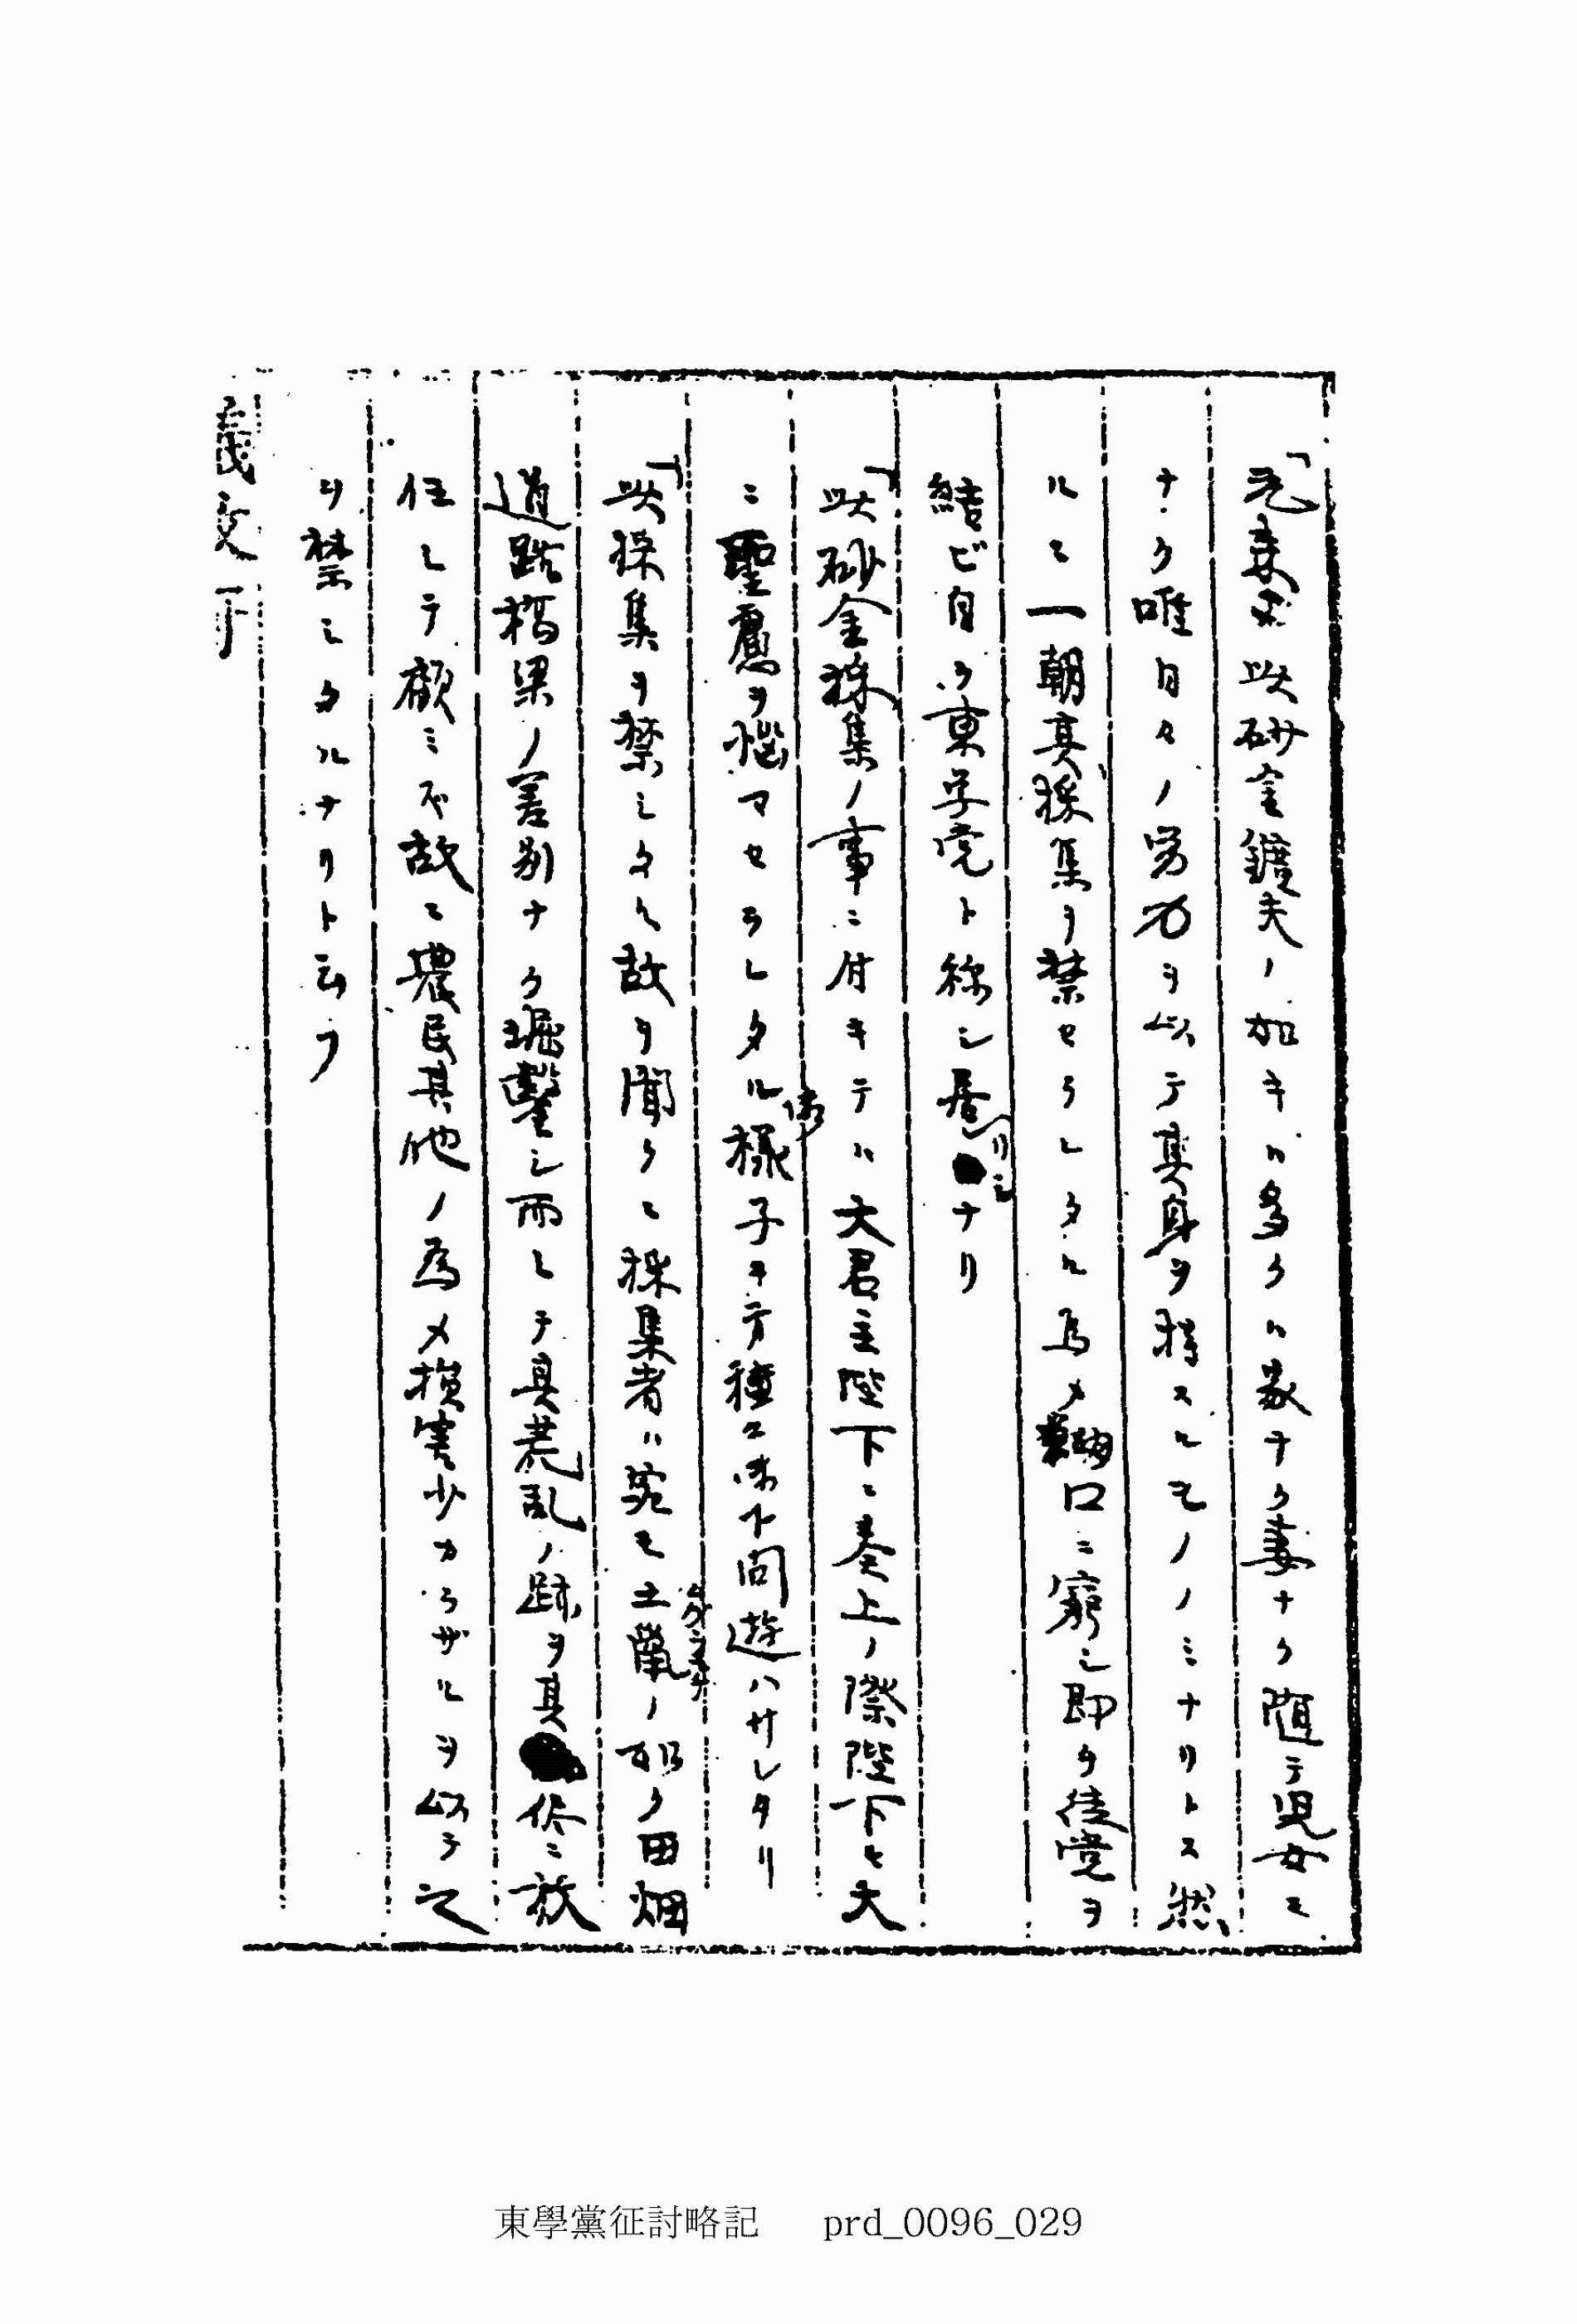 「元来此砂金鑛夫ノ如キハ多クハ家ナク妻ナク随テ児女モ
ナク唯日々ノ労力ヲ以テ其身ヲ扶スルモノノミナリトス然
ルニ一朝其採集ヲ禁セラレタル為メ糊口ニ窮シ即ク徒党ヲ
結ビ自ラ東学党ト称シ居リシナリ
「此砂金採集ノ事ニ付キテハ大君主陛下ニ奏上ノ際陛下モ大
ニ聖慮ヲ悩マセラレタル様子ニテ種々味下問遊ハサレタリ
「此採集ヲ禁シタル故ヲ聞クニ採集者ハ宛モ土鼠ノ如ク田畑
道路橋梁ノ差別ナク堀鑿シ而シテ其荒乱ノ跡ヲ其侭ニ放
任シテ顧ミズ故ニ農民其他ノ為メ損害少カラザルヲ以テ之
ヲ禁シタルナリト云フ
東學黨征討略記 prd_0096_029